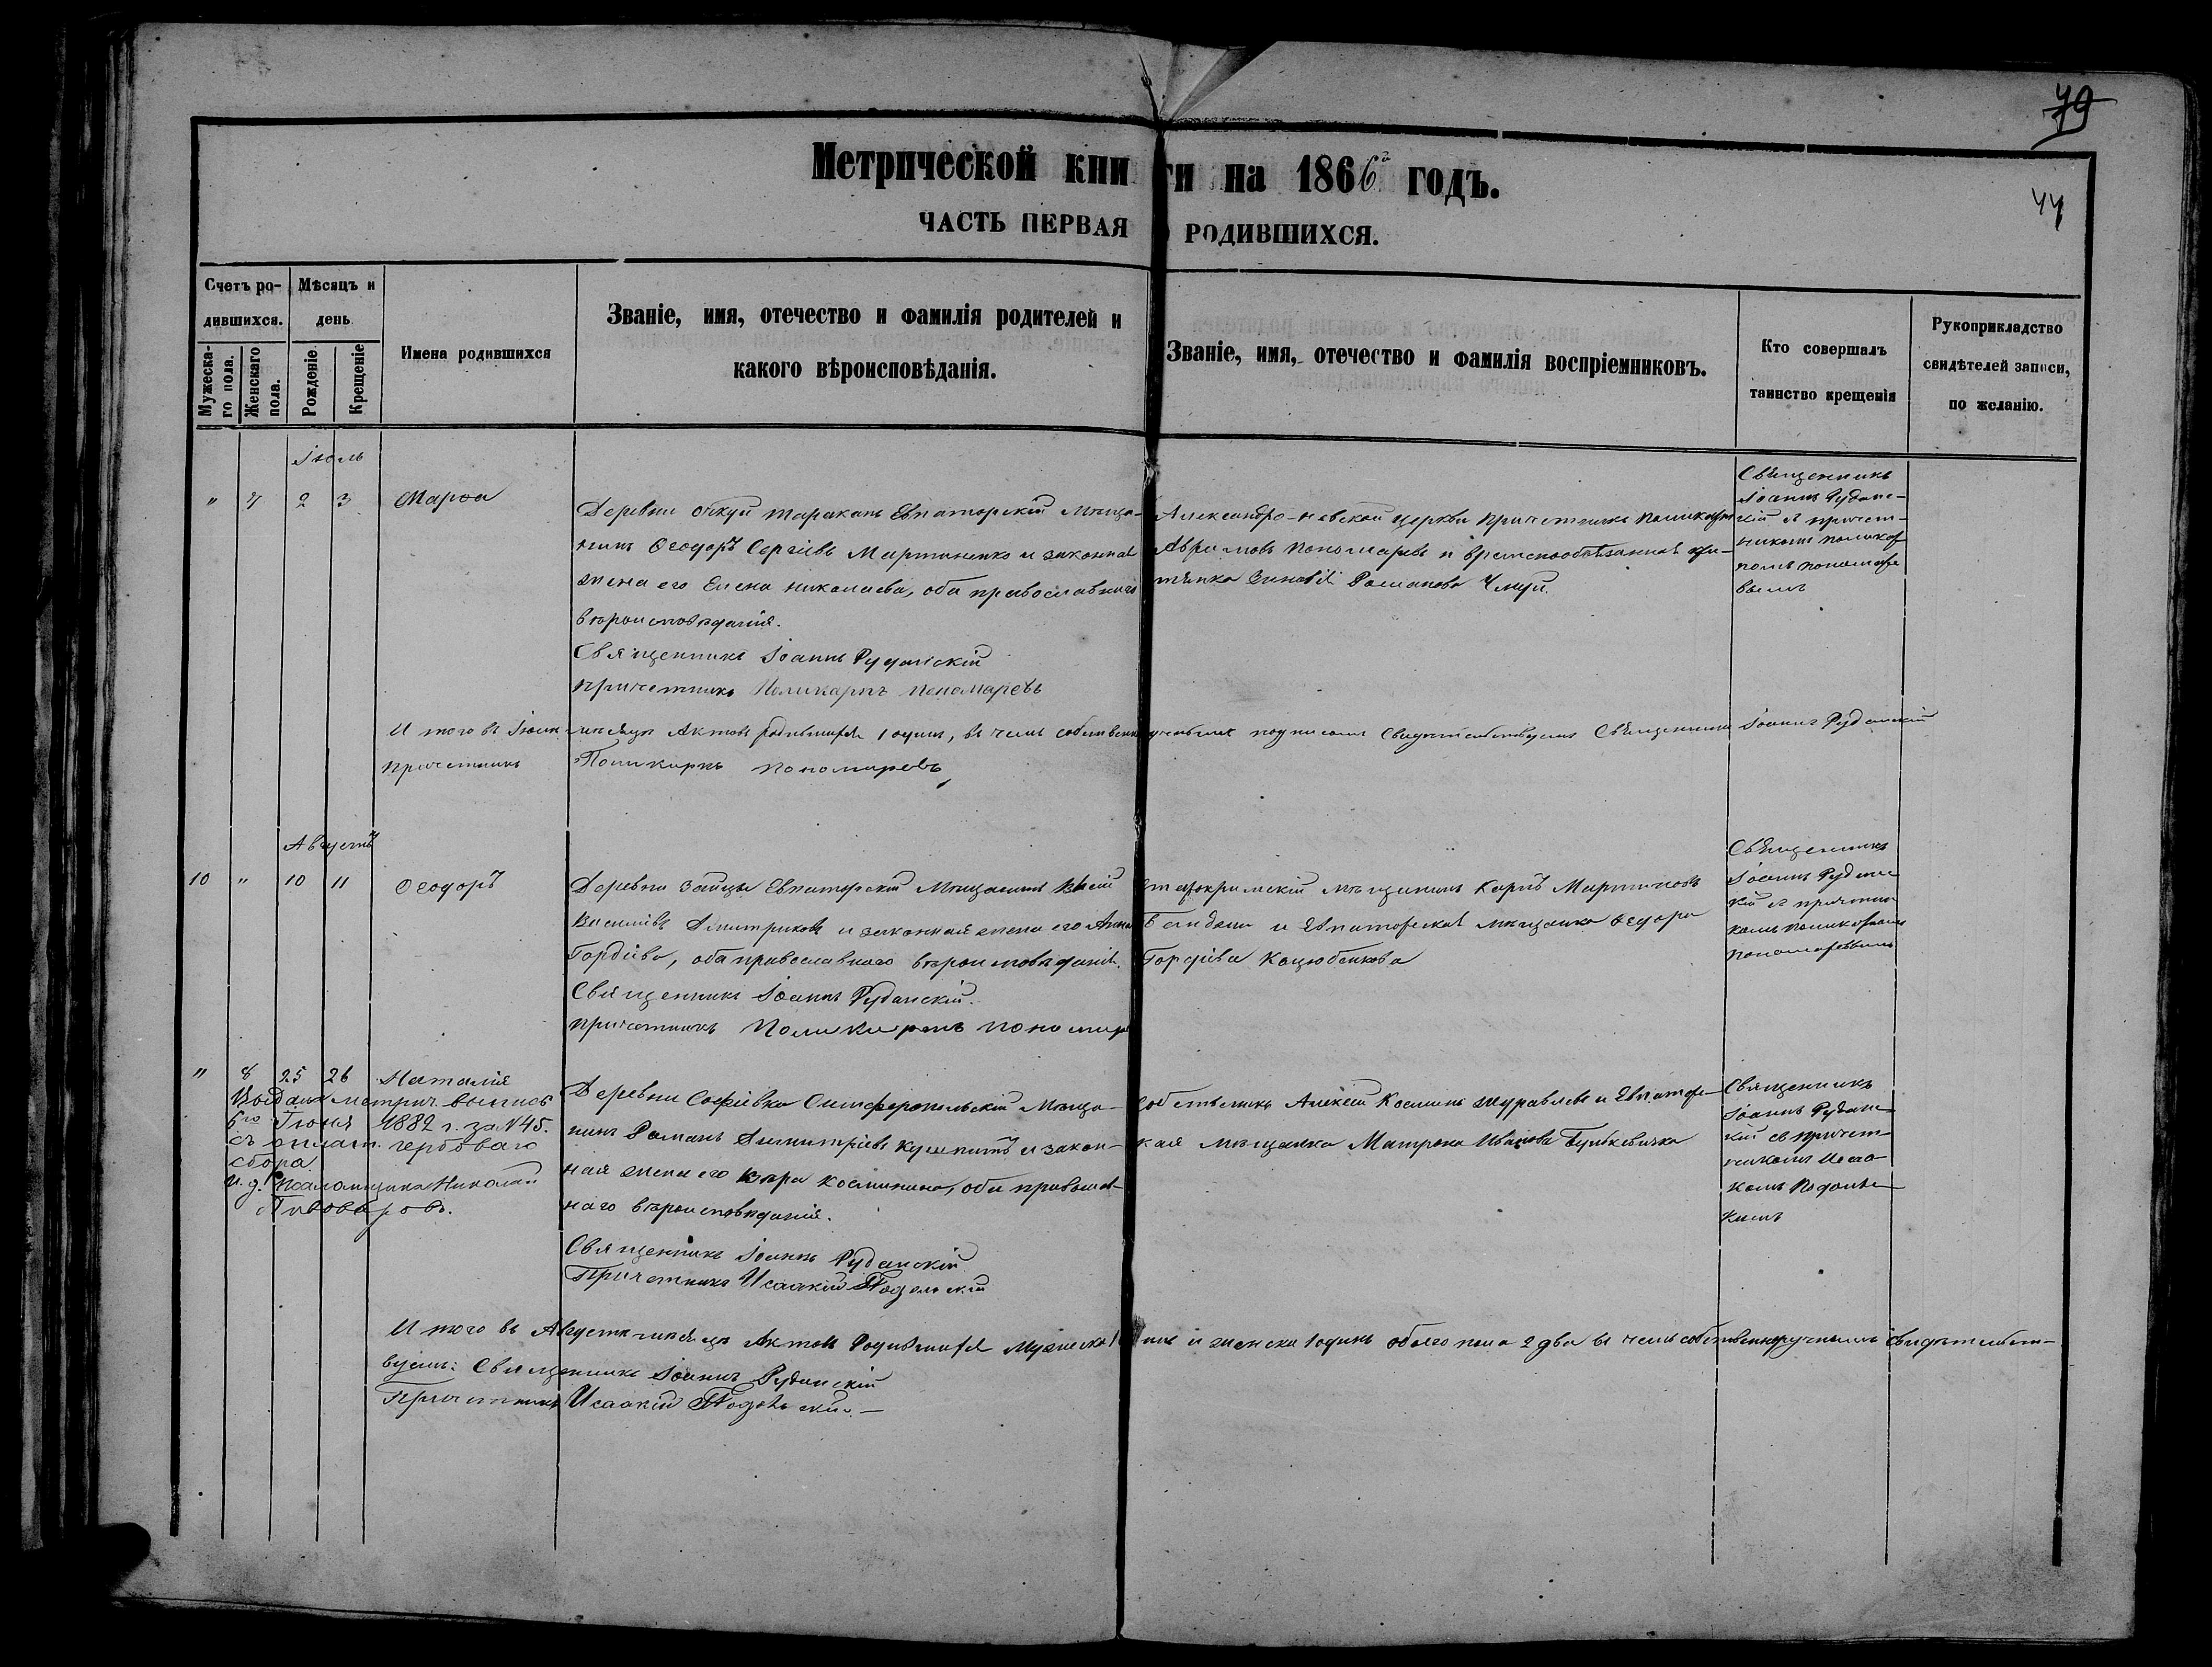 79
44
Метрической книги на 1866й годъ.
ЧАСТЬ ПЕРВАЯ О РОДИВШИХСЯ.
Счетъ ро-
дившихся.
Мужеска-
го пола.
Женскаго
пола.
Мѣсяцъ и
день
Рожденіе.
Крещеніе
Имена родившихся
Званіе, имя, отечество и фамилія родителей и
какого вѣроисповѣданія.
Званіе, имя, отечество и фамилія воспріемниковъ.
Кто совершалъ
таинство крещенія
Рукоприкладство
свидѣтелей записи,
по желанію.
Іюль
" 7 2 3 Марѳа
Деревни Таракашъ Евпаторскій Мѣща-
нинъ Ѳеодоръ Сергіевъ Мартиненко и законная
жена его Елена Николаева, оба православнаго
вѣроисповѣданія.
Священникъ Іоаннъ Руданскій
Причетникъ Поликарпъ Пономаревъ
Александро-Невской церкви Причетникъ Поликарпъ
Аврамовъ Пономаревъ и временнообязанная кре-
стьянка Романова
Священникъ
Іоаннъ Рудан-
скій съ причет-
никомъ Поликар-
помъ Пономаре
вымъ
И того въ Іюлѣ мѣсяцѣ Актовъ родившихся 1 одинъ, въ чемъ собственноручнымъ подписомъ Свидѣтельствуемъ Священникъ Іоаннъ Руданскій
Причетникъ Поликарпъ Пономаревъ
Августъ
10 " 10 11 Ѳеодоръ
Деревни Евпаторскій Мѣщанинъ
Василіевъ Дмитриковъ и законная жена его Анна
Гордіева, оба православнаго вѣроисповѣданія.
Священникъ Іоаннъ Руданскій.
Причетникъ Поликарпъ Пономар
Старокримскій мѣщанинъ Карпъ Мартиновъ
и Евпаторская мѣщанка Ѳедора
Гордіева Коцюбенкова
Священникъ
Іоаннъ Рудан
скій съ причетни
комъ Поликарпомъ
Пономаревымъ
" 8 25 26 Наталія
Выдана метрич. выпись
6го Іюня 1882 г. за N45.
съ оплат. гербоваго
сбора.
И. д. Псаломщика Николай
Пивоваровъ.
Деревни Софіевка Симферопольскій Мѣща-
нинъ Романъ Димитріевъ и закон-
ная жена его Космина, оба православ-
наго вѣроисповѣданія.
Священникъ Іоаннъ Руданскій
Причетникъ Исаакій Подольскій
Собственникъ Алексѣй Косминъ Журавлевъ и Евпаторс-
кая мѣщанка Матрона Иванова
Священникъ
Іоаннъ Рудан-
скій съ причет-
никомъ Исаа-
комъ Подольс-
кимъ
И того въ Августѣ мѣсяцѣ Актовъ Родившихся Мужеска 1 одинъ и женска 1 одинъ обоего пола 2 два въ чемъ собственноручнымъ свидѣтельст-
вуемъ: Священникъ Іоаннъ Руданскій
Причетникъ Исаакій Подольскій.